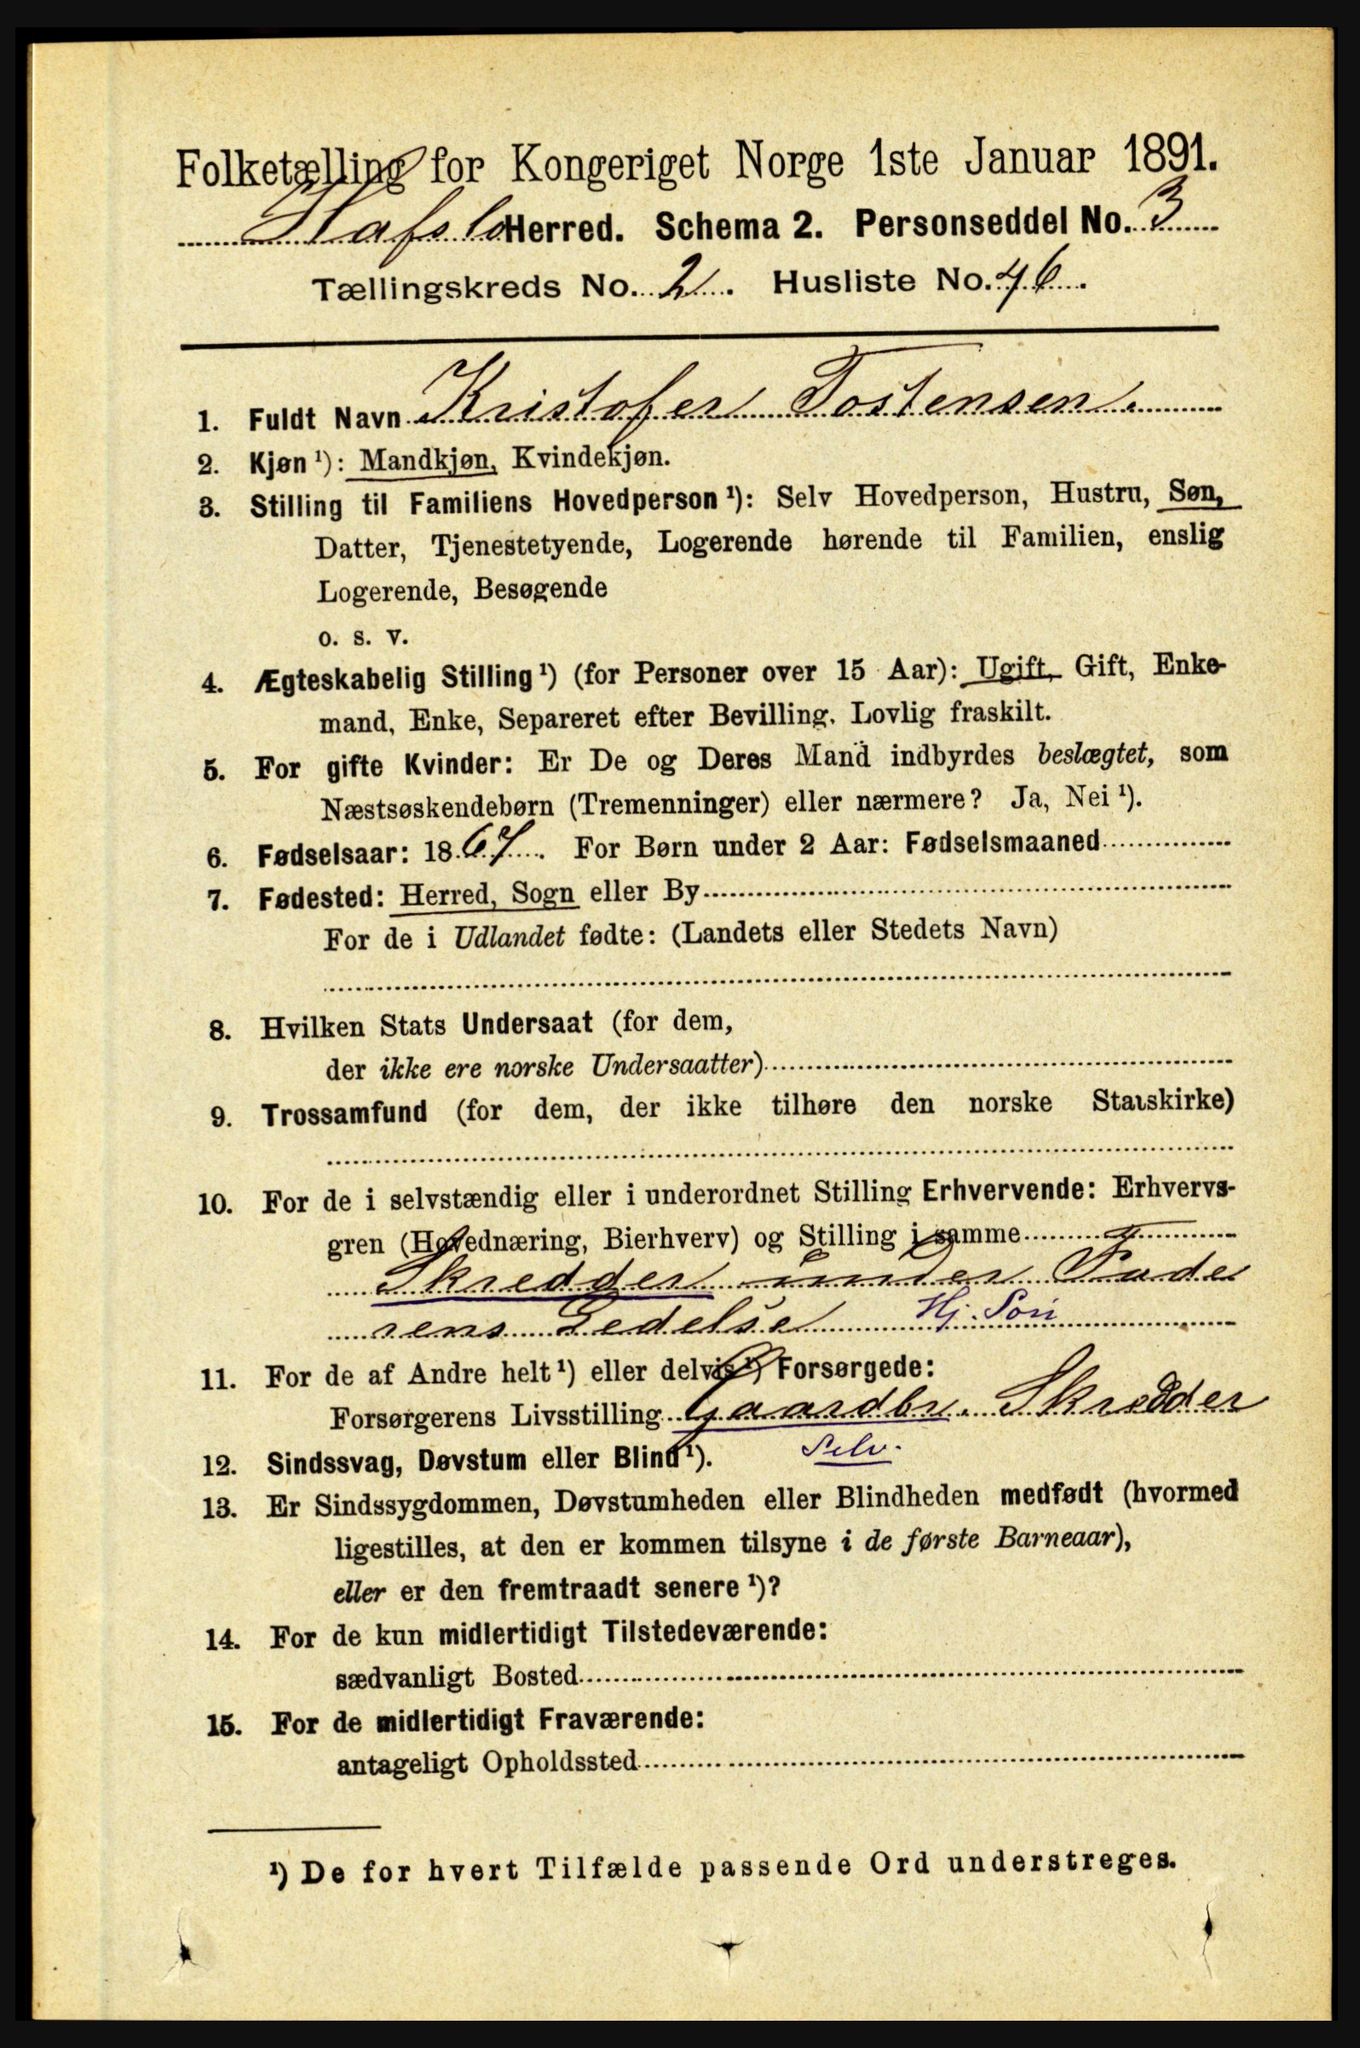 Folketælling for Kongeriget Norge 1ste Januar 1891.
Hafslo Herred. Schema 2. Personseddel No. 3
Tællingskreds No. 2. Husliste No. 46.
1. Fuldt Navn Kristofer Tostensen.
2. Kjøn ¹): Mandkjøn, Kvindekjøn.
3. Stilling til Familiens Hovedperson ¹): Selv Hovedperson, Hustru, Søn,
Datter, Tjenestetyende, Logerende hørende til Familien, enslig
Logerende, Besøgende
o. s. v.
4. Ægteskabelig Stilling ¹) (for Personer over 15 Aar): Ugift, Gift, Enke-
mand, Enke, Separeret efter Bevilling. Lovlig fraskilt.
5. For gifte Kvinder: Er De og Deres Mand indbyrdes beslægtet, som
Næstsøskendebørn (Tremenninger) eller nærmere? Ja, Nei ¹).
6. Fødselsaar: 1867. For Børn under 2 Aar: Fødselsmaaned
7. Fødested: Herred, Sogn eller By
For de i Udlandet fødte: (Landets eller Stedets Navn)
8. Hvilken Stats Undersaat (for dem,
der ikke ere norske Undersaatter)
9. Trossamfund (for dem, der ikke tilhøre den norske Statskirke)
10. For de i selvstændig eller i underordnet Stilling Erhvervende: Erhvervs-
gren (Hovednæring, Bierhverv) og Stilling i samme
Skredder under Fade
rens Ledelse Hj. Søn
11. For de af Andre helt ¹) eller delvis ¹) Forsørgede:
Forsørgerens Livsstilling Gaardbr. Skredder
Selv.
12. Sindssvag, Døvstum eller Blind ¹).
13. Er Sindssygdommen, Døvstumheden eller Blindheden medfødt (hvormed
ligestilles, at den er kommen tilsyne i de første Barneaar),
eller er den fremtraadt senere ¹)?
14. For de kun midlertidigt Tilstedeværende:
sædvanligt Bosted
15. For de midlertidigt Fraværende:
antageligt Opholdssted
¹) De for hvert Tilfælde passende Ord understreges.